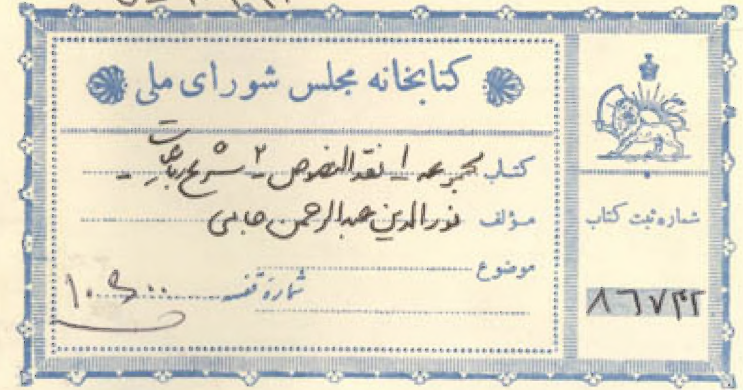 کتابخانه مجلس شورای ملی
کتاب مجموعه ۱ - نقد النصوص ۲ - شرح رباعیات -
مؤلف نورالدین عبدالرحمن جامی
موضوع
شماره قفسه
شماره ثبت کتاب
۸۶۷۴۲